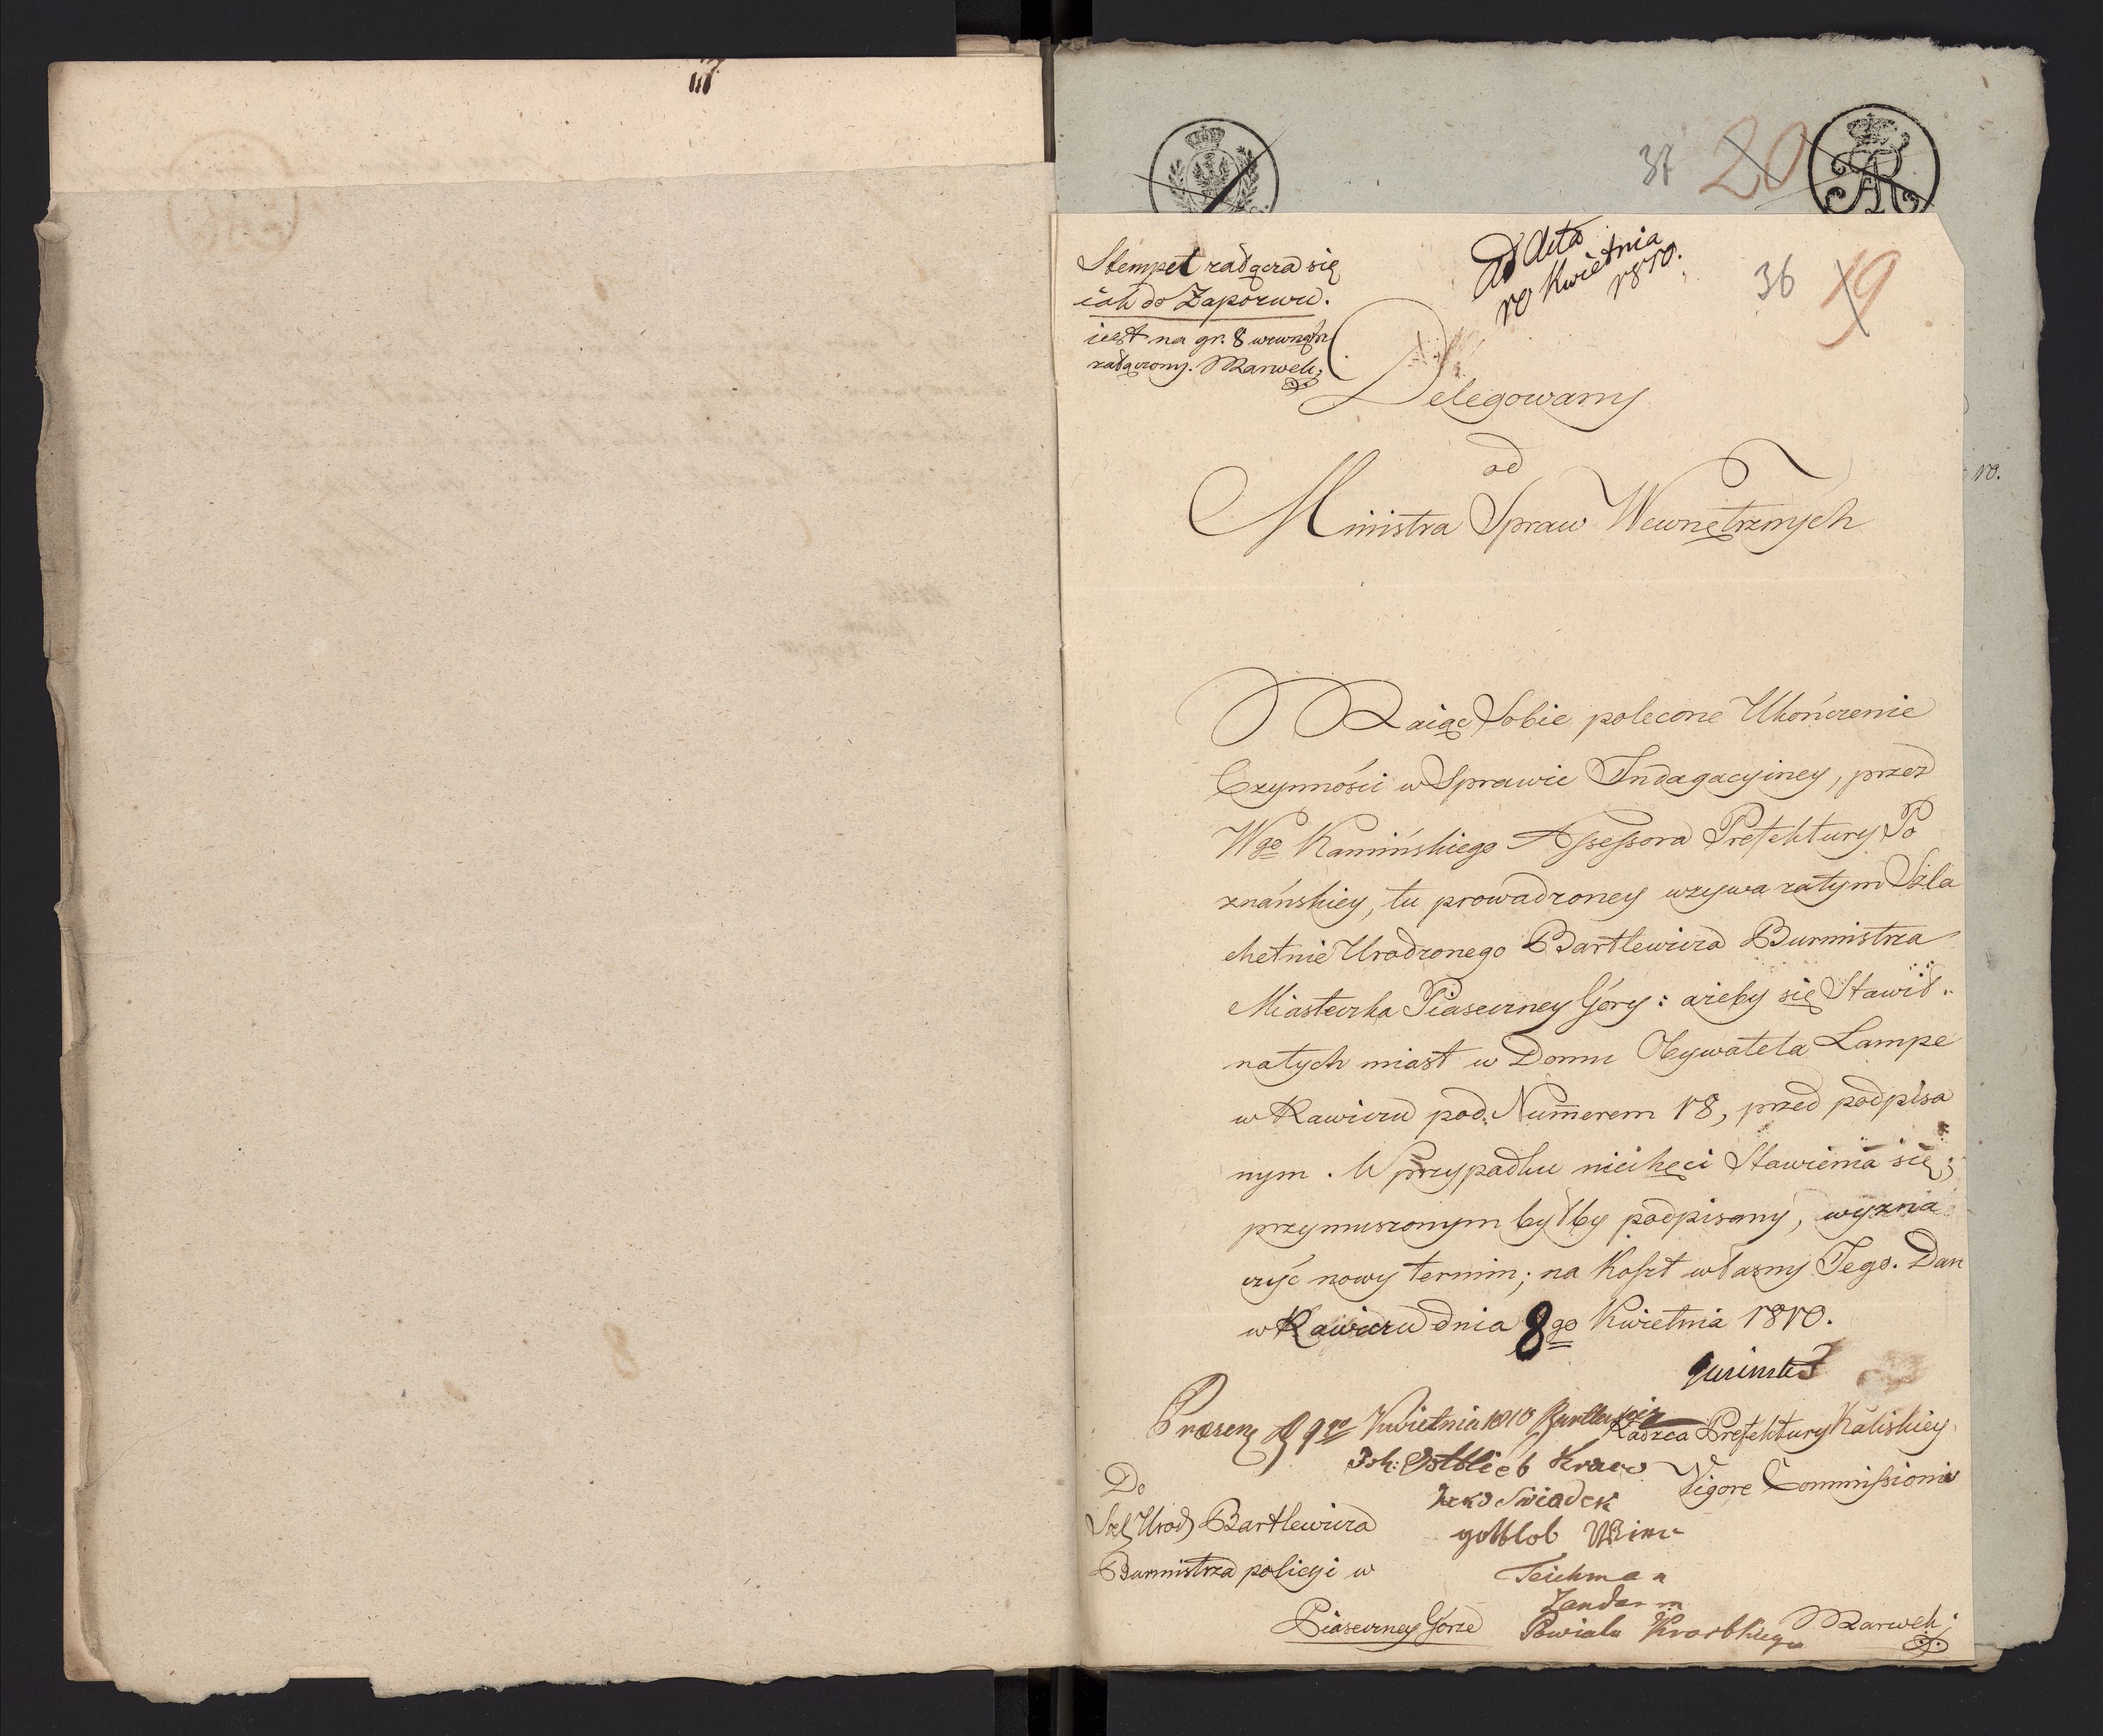 37 20
Stempel załącza się
iak do Zapozwu.
iest na gr. 8 wewnątrz
załączony. Marwek
Ad Acta
10 Kwietnia
1810.
36 19
Delegowany
od
Ministra Spraw Wewnętrznych
10.
Maiąc Sobie polecone Ukończenie
Czynności w Sprawie Indagacyiney, przez
Wgo Kamińskiego Assessora Prefektury Po
znańskiey, tu prowadzoney wzywa zatym Szla
chetnie Urodzonego Bartlewicza Burmistrza
Miasteczka Piaseczney Góry: ażeby się Stawił
natych miast w Domu Obywatela Lampe
w Rawiczu pod Numerem 18, przed podpisa
nym. W przypadku niechęci Stawienia się;
przymuszonym byłby podpisany, wyzna
czyć nowy termin; na Koszt własny Tego. Dan
w Rawiczu dnia 8go Kwietnia 1810.
Præsent d 9go Kwietnia 1810 Bartlewicz
Radzca Prefektury Kaliskiey
Joh: Gottlieb
Vigore Commissionis
Jako Swiadek
Do
Szl Urod Bartlewicza
gottlob
Burmistrza policyi w
Teichman
Zandarm
Piaseczney Górze
Powiatu Krobskiego
Marwek